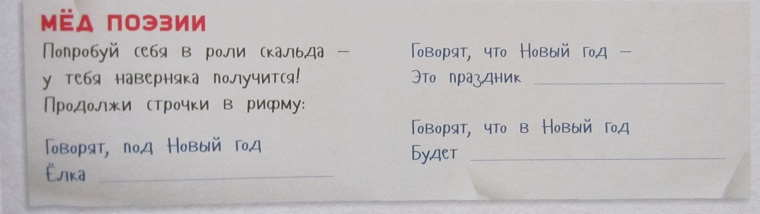 МЁД ПОЭЗИИ
Попробуй себя в роли скальда –
у тебя наверняка получится!
Продолжи строчки в рифму:
Говорят, под Новый год
Ёлка
Говорят, что Новый год –
Это праздник
Говорят, что в Новый год
Будет